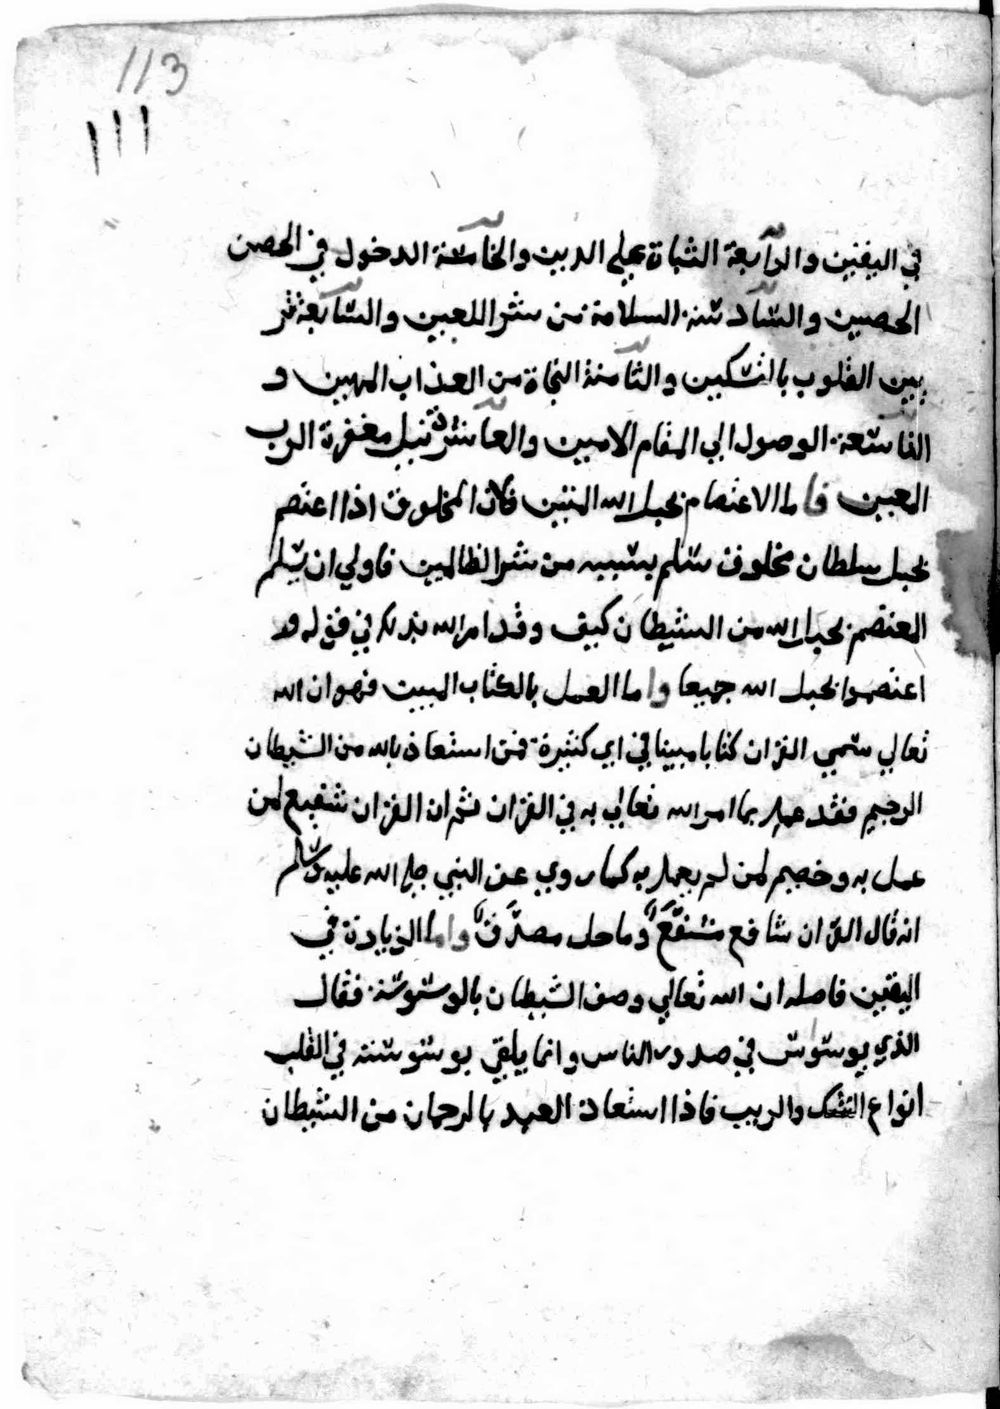 113
١١١
في اليقين والرابعة الثباة علي الدين والخامسة الدخول في الحصن
الحصين والسادسة السلامة من شر اللعين والسابعة
بين القلوب بالتسكين والثامنة النجاة من العذاب المهين و
التاسعة الوصول الي المقام الامين والعاشرة نيل مغفرة الرب
المعين فاما الاعتصام بحبل الله المتين فلان المخلوق اذا اعتصم
بحبل سلطان مخلوق سلم بسببه من شر الظالمين فاولي ان يسلم
المعتصم بحبل الله من الشيطان كيف وقد امر الله بذلك في قوله و
اعتصموا بحبل الله جميعا واما العمل بالكتاب المبين فهو ان الله
تعالي سمي القران كتابا مبينا في اي كثيرة فمن استعاذ بالله من الشيطان
الرجيم فقد عمل بما امر الله تعالي به في القران ثم ان القران شفيع لمن
عمل به وخصيم لمن لم يعمل به كما روي عن النبي صلي الله عليه وسلم
انه قال القران شافع مشفع وماحل مصدق واما الزيادة في
اليقين فاصله ان الله تعالي وصف الشيطان بالوسوسة فقال
الذي يوسوس في صدور الناس وانما يلقي بوسوسته في القلب
انواع الشك والريب فاذا استعاذ العبد بالرحمان من الشيطان